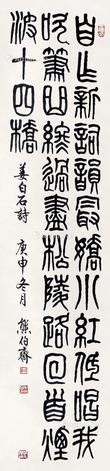 自作新詞韻最嬌小紅低唱我
吹簫曲終過盡松陵路回首煙
波十四橋
姜白石詩 庚申冬月 熊伯齊